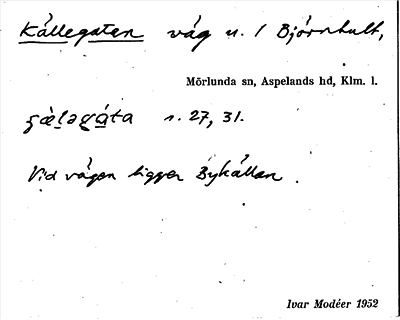 Källegatan väg u. / Björnhult,
Mörlunda sn, Aspelands hd, Klm. l.
s. 27, 31.
Vid vägen ligger Bykällan.
Ivar Modéer 1952